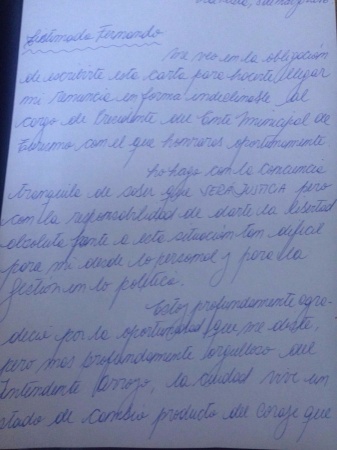 Estimado Fernando
Me veo en la obligación
de escribirte esta carta para hacerte llegar
mi renuncia en forma indeclinable al
cargo de Presidente del Ente Municipal de
Turismo con el que honraras oportunamente.
Lo hago con la conciencia
tranquila de saber que SERÁ JUSTICIA pero
con la responsabilidad de darte la libertad
absoluta frente a esta situación tan dificil
para mi desde lo personal y para la
gestión en lo politico.
Estoy profundamente agra-
decido por la oportunidad que me diste,
pero mas profundamente orgulloso del
Intendente Arroyo, la ciudad vive un
estado de cambio producto del coraje que